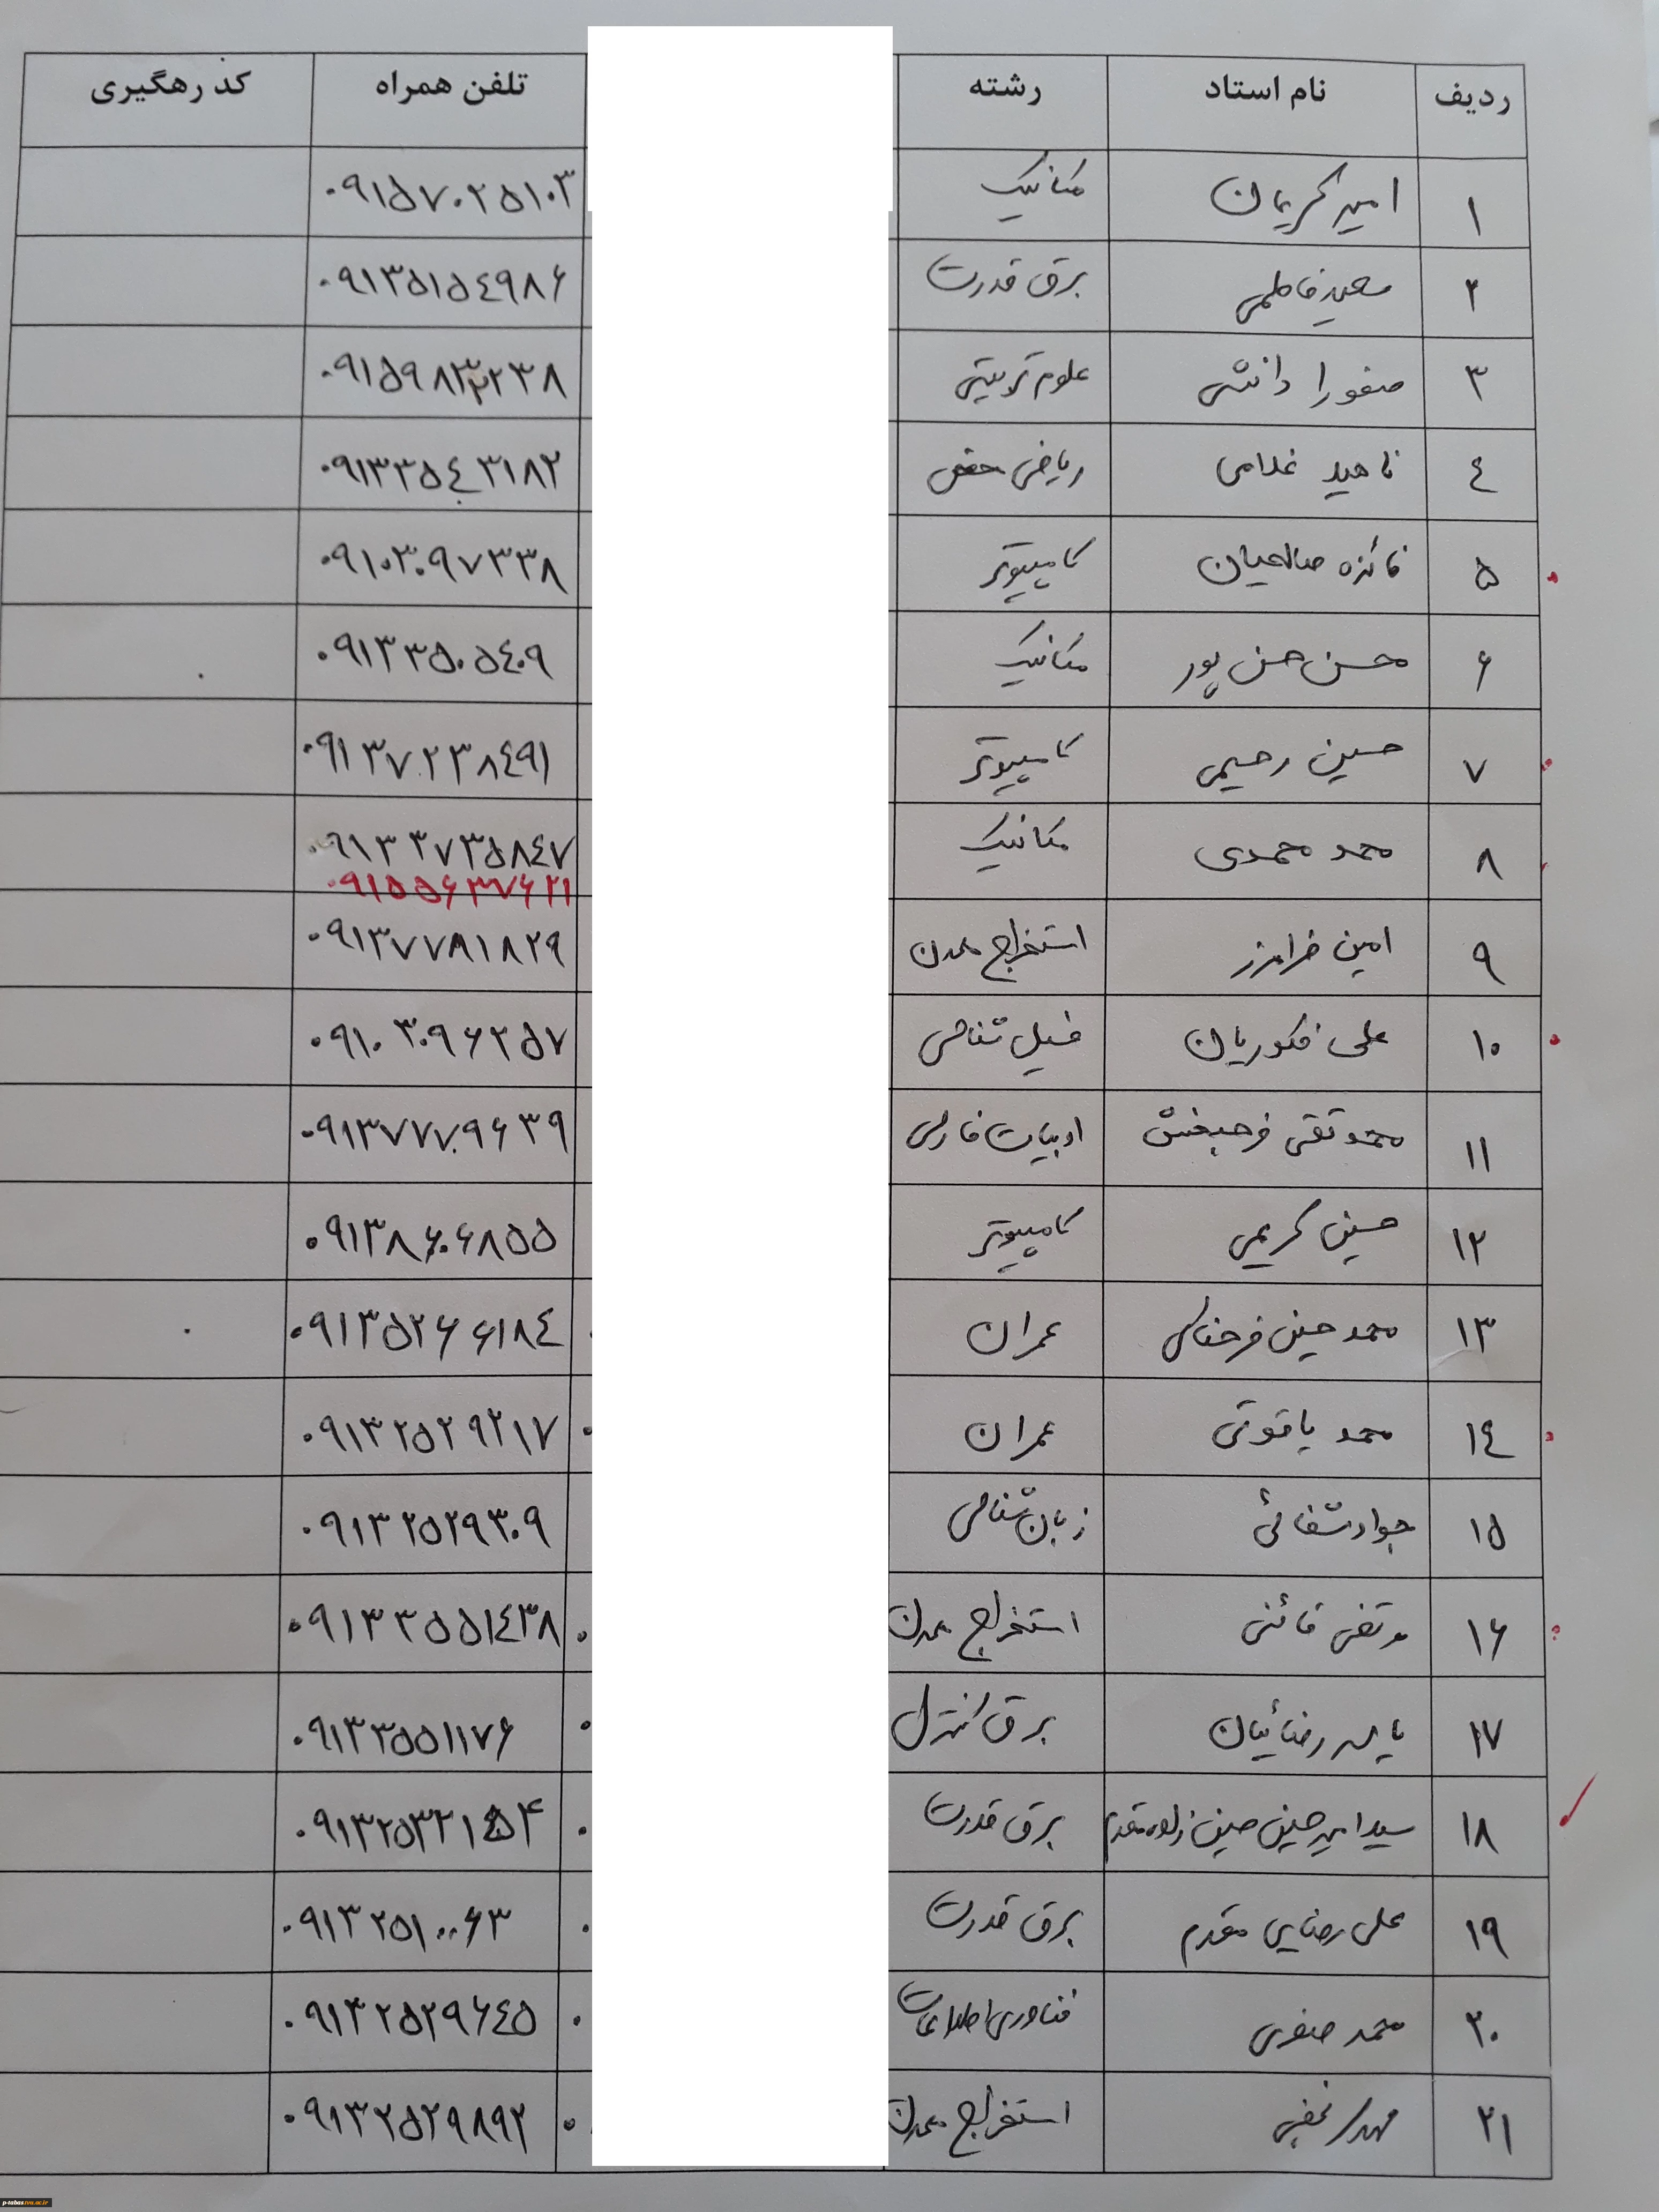 ردیف نام استاد رشته تلفن همراه کد رهگیری
۱ امیر کریمیان مکانیک ۰۹۱۵۷۰۲۵۱۰۳
۲ سعید فاطمی برق قدرت ۰۹۱۳۵۱۵۴۹۸۶
۳ صفورا دانشی علوم تربیتی
۴ ناهید غلامی ریاضی محض ۰۹۱۳۳۵۴۳۱۸۲
۵ فائزه صالحیان کامپیوتر ۰۹۱۰۳۰۹۷۳۳۸
۶ محسن حسن پور مکانیک ۰۹۱۳۳۵۰۵۴۰۹
۷ حسین رحیمی کامپیوتر ۰۹۱۳۷۲۳۸۴۹۱
۸ محمد محمدی مکانیک ۰۹۱۳۳۷۳۵۸۴۷
۰۹۱۵۵۶۳۷۶۲۱
۹ امین فرامرز استخراج معدن ۰۹۱۳۷۷۸۱۸۲۹
۱۰ علی فکوریان فسیل شناسی ۰۹۱۰۳۰۹۶۲۵۷
۱۱ محمد تقی فرحبخش ادبیات فارسی ۰۹۱۳۷۷۷۰۹۶۳۹
۱۲ حسین کریمی کامپیوتر ۰۹۱۳۸۶۰۶۸۵۵
۱۳ محمد حسین عمران ۰۹۱۳۵۲۶۶۱۸۴
۱۴ محمد یاقوتی عمران ۰۹۱۳۲۵۲۹۲۱۷
۱۵ جواد شفائی زبان شناسی ۰۹۱۳۲۵۲۹۳۰۹
۱۶ مرتضی قائنی استخراج معدن ۰۹۱۳۳۵۵۱۴۳۸
۱۷ یاسر رضائیان برق کنترل ۰۹۱۳۳۵۵۱۱۷۶
۱۸ سید امیر حسین حسین زاده مقدم برق قدرت
۱۹ علی رضایی مقدم برق قدرت ۰۹۱۳۲۵۱۰۰۶۳
۲۰ محمد صفری فناوری اطلاعات ۰۹۱۳۲۵۲۹۶۴۵
۲۱ مهدی نجفی استخراج معدن ۰۹۱۳۲۵۲۹۸۹۲
p-tabas.tvu.ac.ir